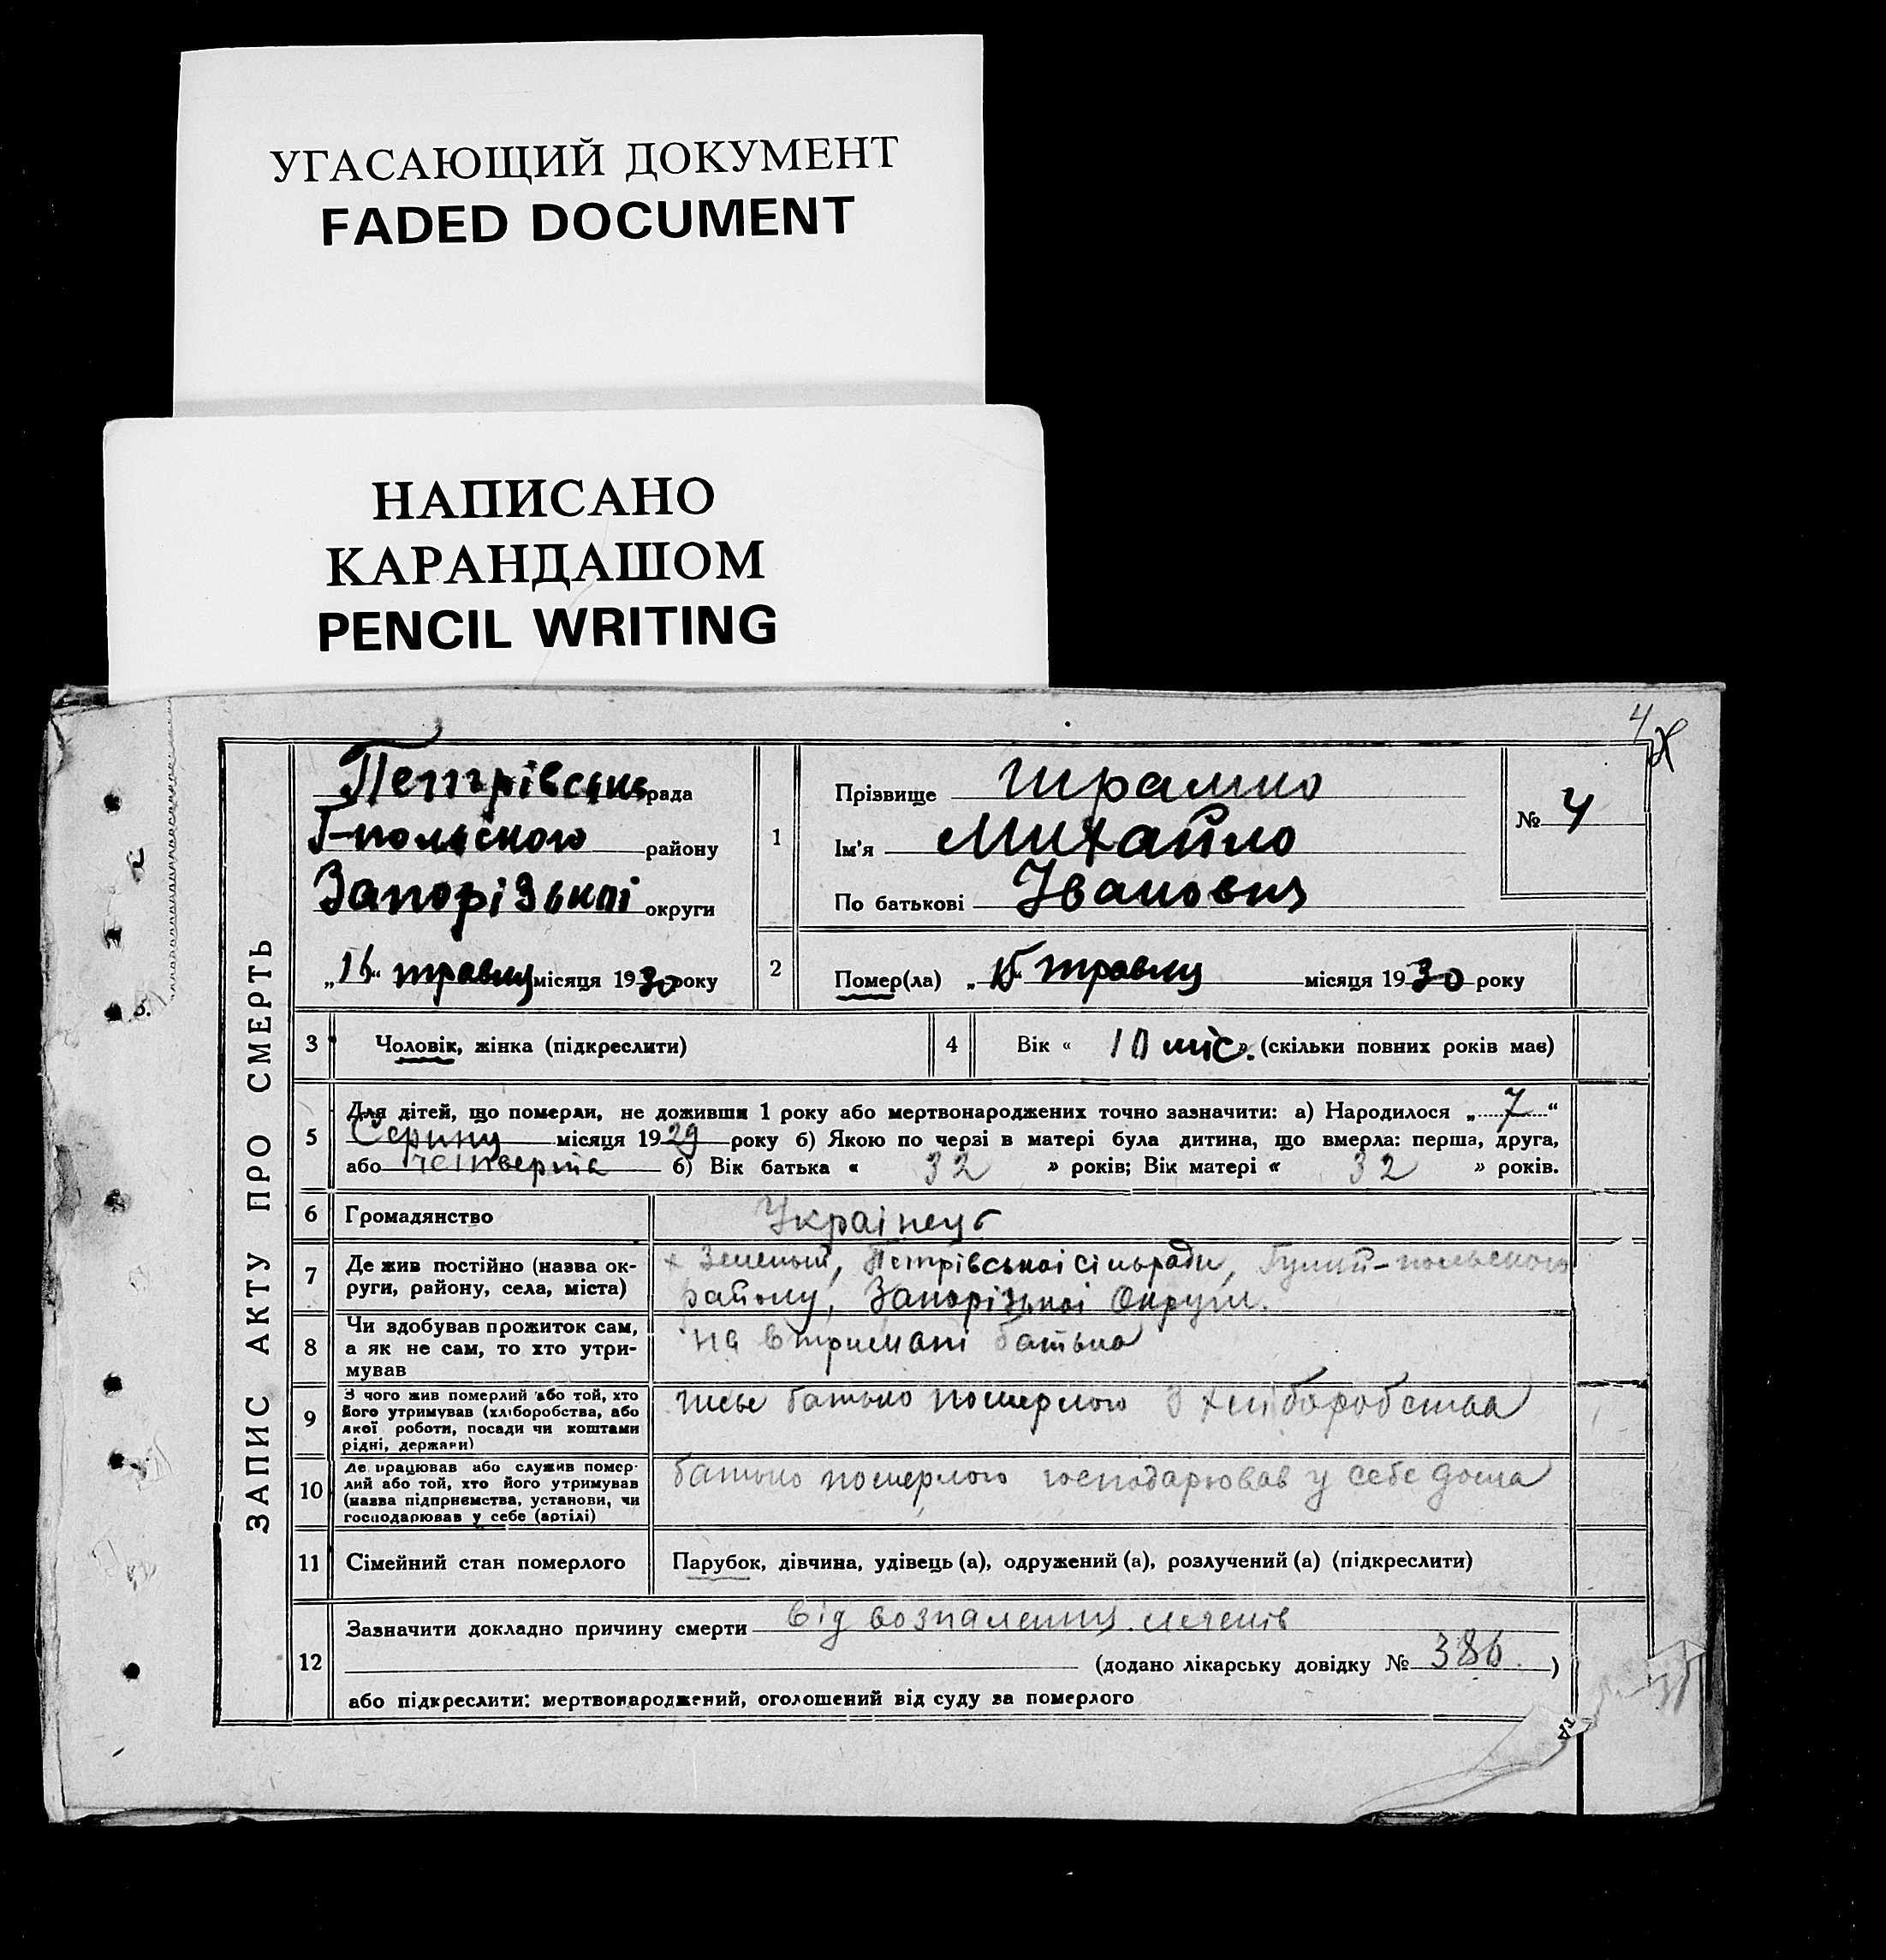 УГАСАЮЩИЙ ДОКУМЕНТ
FADED DOCUMENT
НАПИСАНО
КАРАНДАШОМ
PENCIL WRITING
4
ЗАПИС АКТУ ПРО СМЕРТЬ
Петрівська рада
Г-польского району
Запорізькоі округи
„16“ травня місяця 1930 року
1
Прізвище Шрамко
Ім'я Михайло
По батькові Іванович
№ 4
2
Помер(ла) „15“ травня місяця 1930 року
3
Чоловік, жінка (підкреслити)
4
Вік « 10 міс. » (скільки повних років має)
5
Для дітей, що померли, не доживши 1 року або мертвонароджених точно зазначити: а) Народилося „7“
Серпня місяця 1929 року б) Якою по черзі в матері була дитина, що вмерла: перша, друга,
або четверта б) Вік батька « 32 » років; Вік матері « 32 » років.
6
Громадянство
Украінець
7
Де жив постійно (назва ок-
руги, району, села, міста)
х Зелений, Петрівськоі сільради, Гуляй-польского
району, Запорізькоі Округи.
8
Чи здобував прожиток сам,
а як не сам, то хто утри-
мував
на втримані батька
9
З чого жив померлий або той, хто
його утримував (хліборобства, або
якої роботи, посади чи коштами
рідні, держави)
живе батько померлого з хліборобства
10
Де працював або служив помер-
лий або той, хто його утримував
(назва підприємства, установи, чи
господарював у себе (артілі)
батько померлого господарював у себе дома
11
Сімейний стан померлого
Парубок, дівчина, удівець (а), одружений (а), розлучений (а) (підкреслити)
12
Зазначити докладно причину смерти від возпалення легенів
(додано лікарську довідку № 386.)
або підкреслити: мертвонароджений, оголошений від суду за померлого